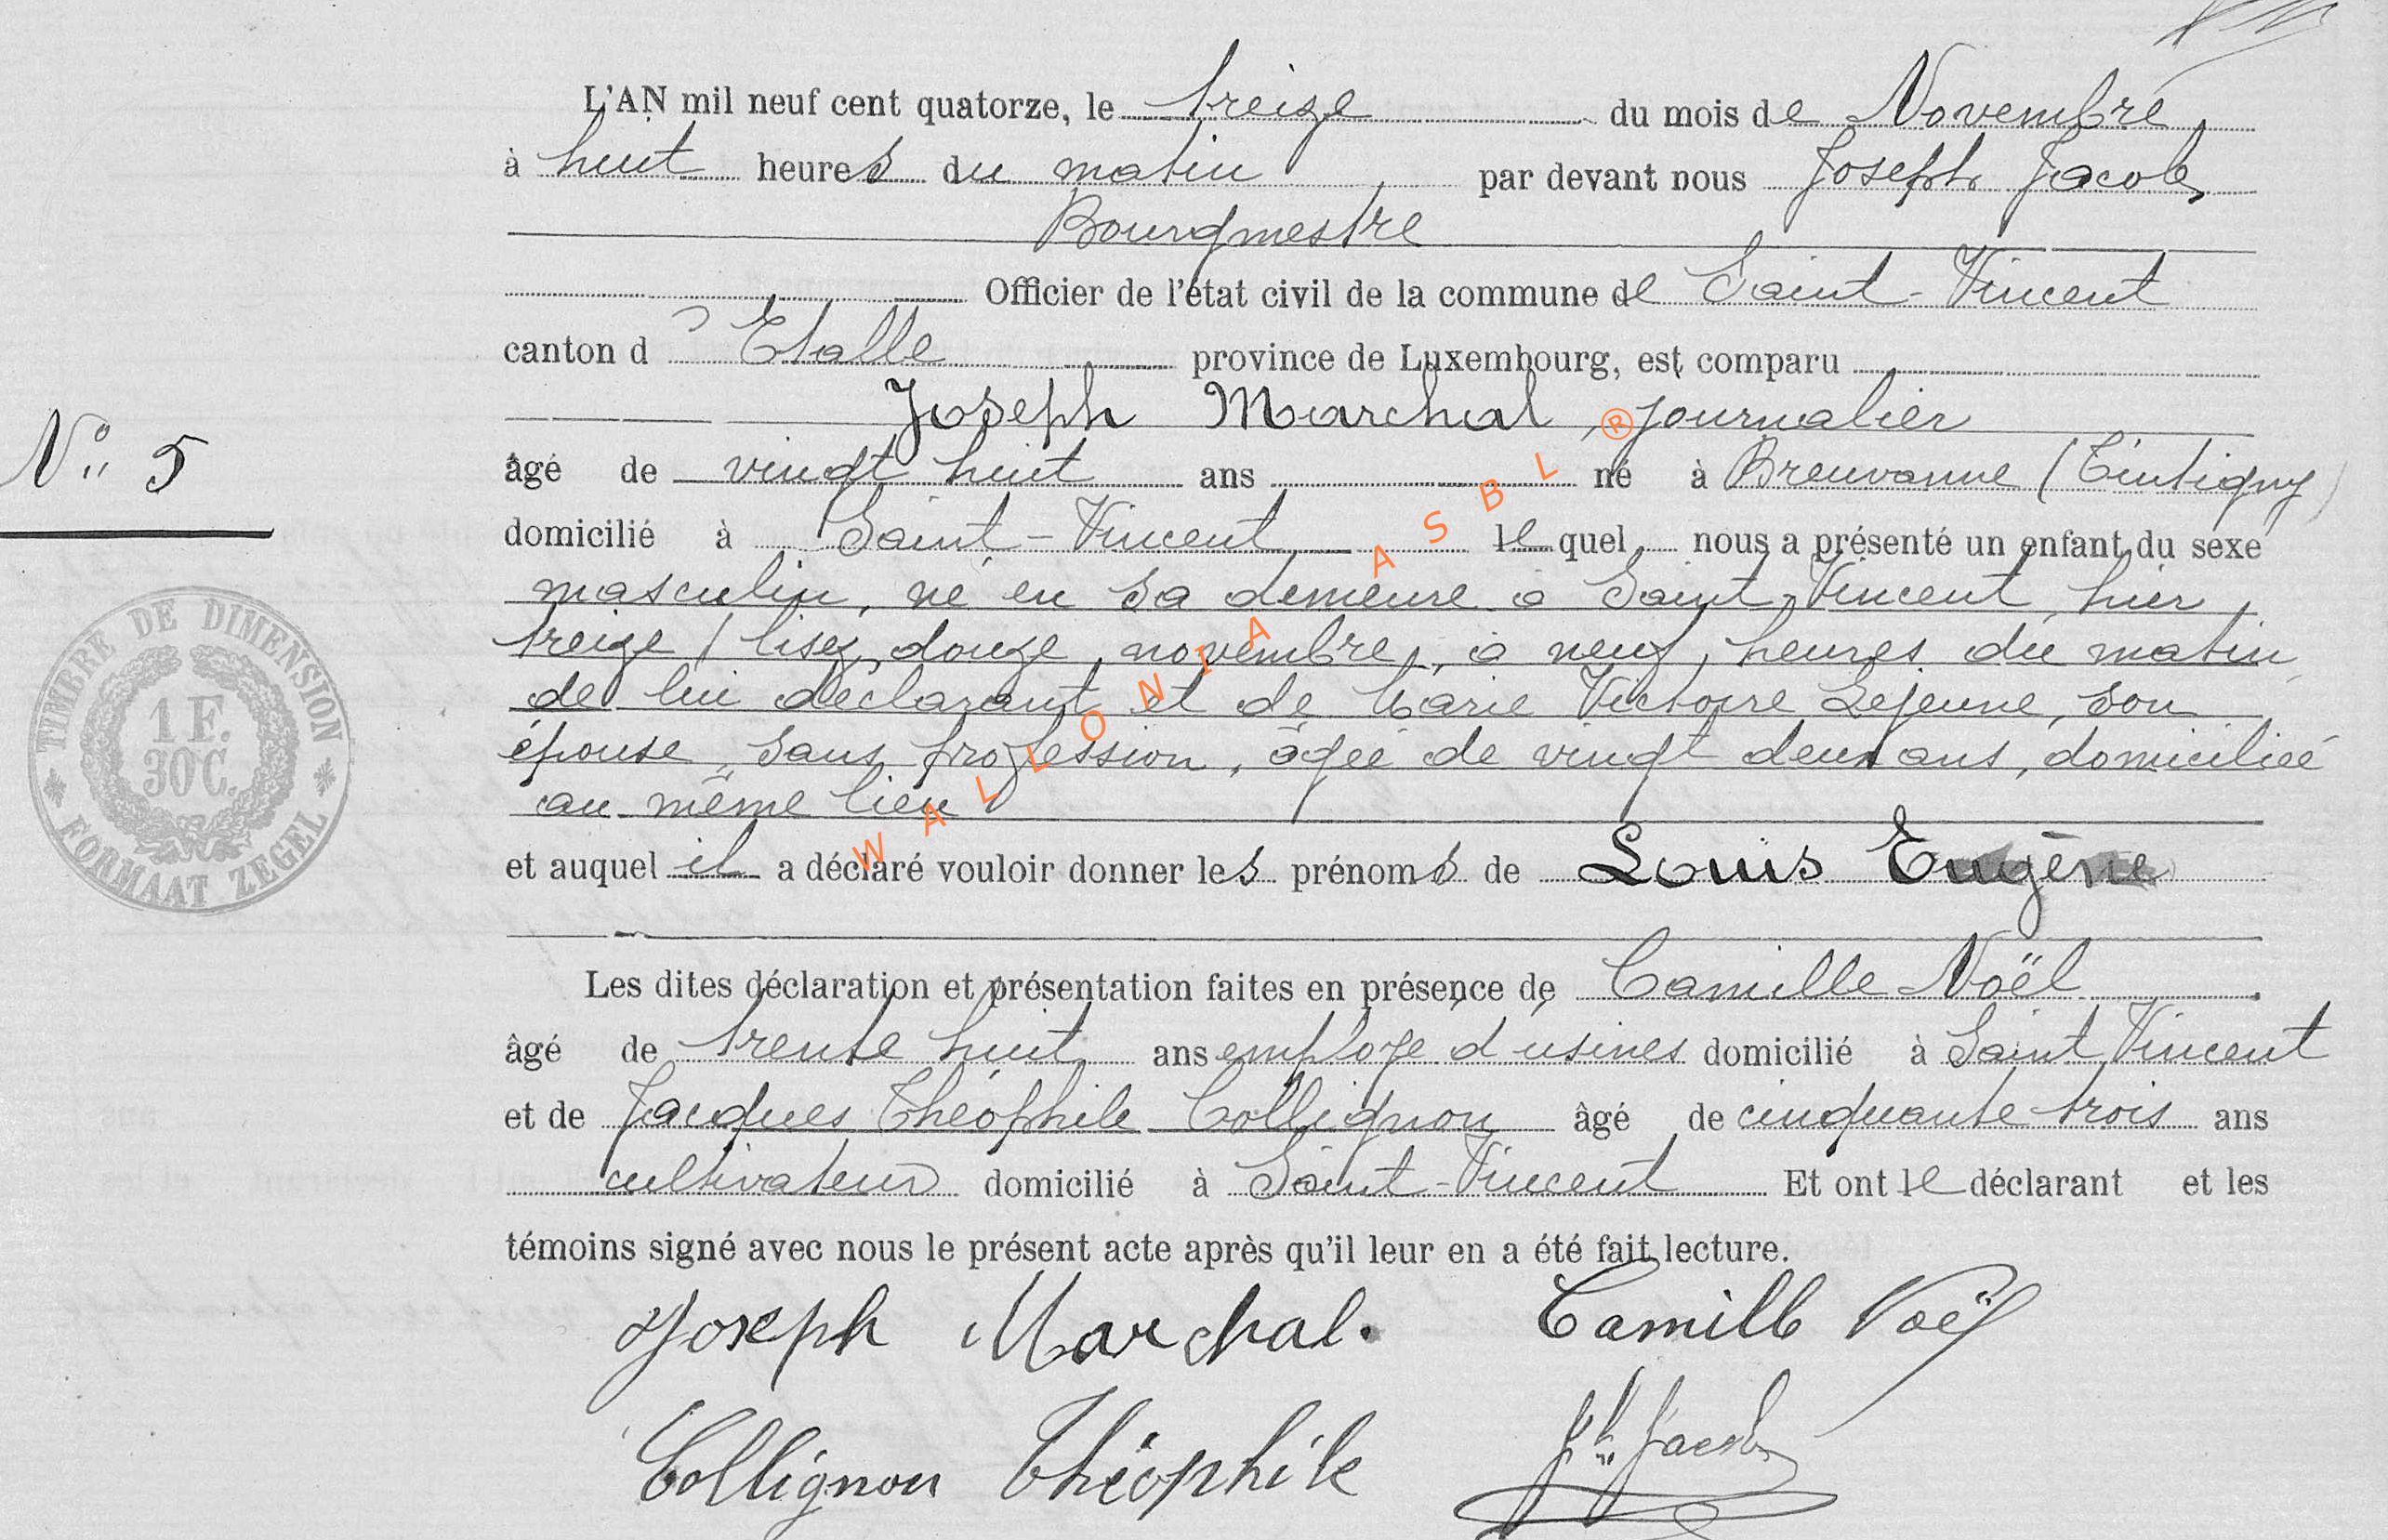 L'AN mil neuf cent quatorze, le treize du mois de Novembre
à huit heures du matin par devant nous Joseph Jacob,
Bourgmestre
Officier de l'état civil de la commune de Saint-Vincent
canton d'Etalle province de Luxembourg, est comparu
Joseph Marchal, journalier
N° 5
âgé de vingt huit ans né à Breuvanne (Tintigny)
domicilié à Saint-Vincent lequel nous a présenté un enfant du sexe
masculin, né en sa demeure à Saint-Vincent, hier
treize / lisez douze novembre, à neuf heures du matin,
de lui déclarant et de Marie Victoire Lejeune, son
épouse, sans profession, âgée de vingt deux ans, domiciliée
au même lieu
et auquel il a déclaré vouloir donner les prénoms de Louis Eugène
Les dites déclaration et présentation faites en présence de Camille Noël
âgé de trente huit ans employé d'usines domicilié à Saint Vincent
et de Jacques Théophile Collignon âgé de cinquante trois ans
cultivateur domicilié à Saint-Vincent Et ont le déclarant et les
témoins signé avec nous le présent acte après qu'il leur en a été fait lecture.
Joseph Marchal. Camille Noël
Collignon Théophile Jh Jacob
TIMBRE DE DIMENSION
1 F.
30 C.
FORMAAT ZEGEL
WALLONIA ASBL ®